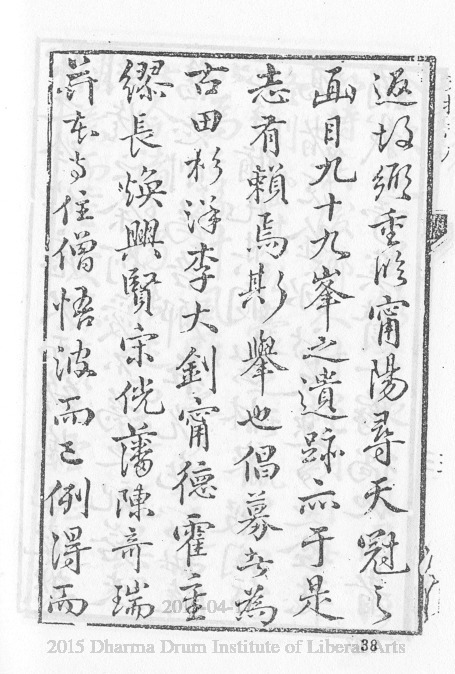 返故鄉重甯陽尋天冠之
面目九十九峯之遺跡亦于是
志有賴焉斯舉也倡募者為
古田杉洋李大釗甯德霍童
繆長煥興賢宋侊藩陳奇瑞
并本寺住僧悟波而已例得而
38
2015 Dharma Drum Institute of Liberal Arts